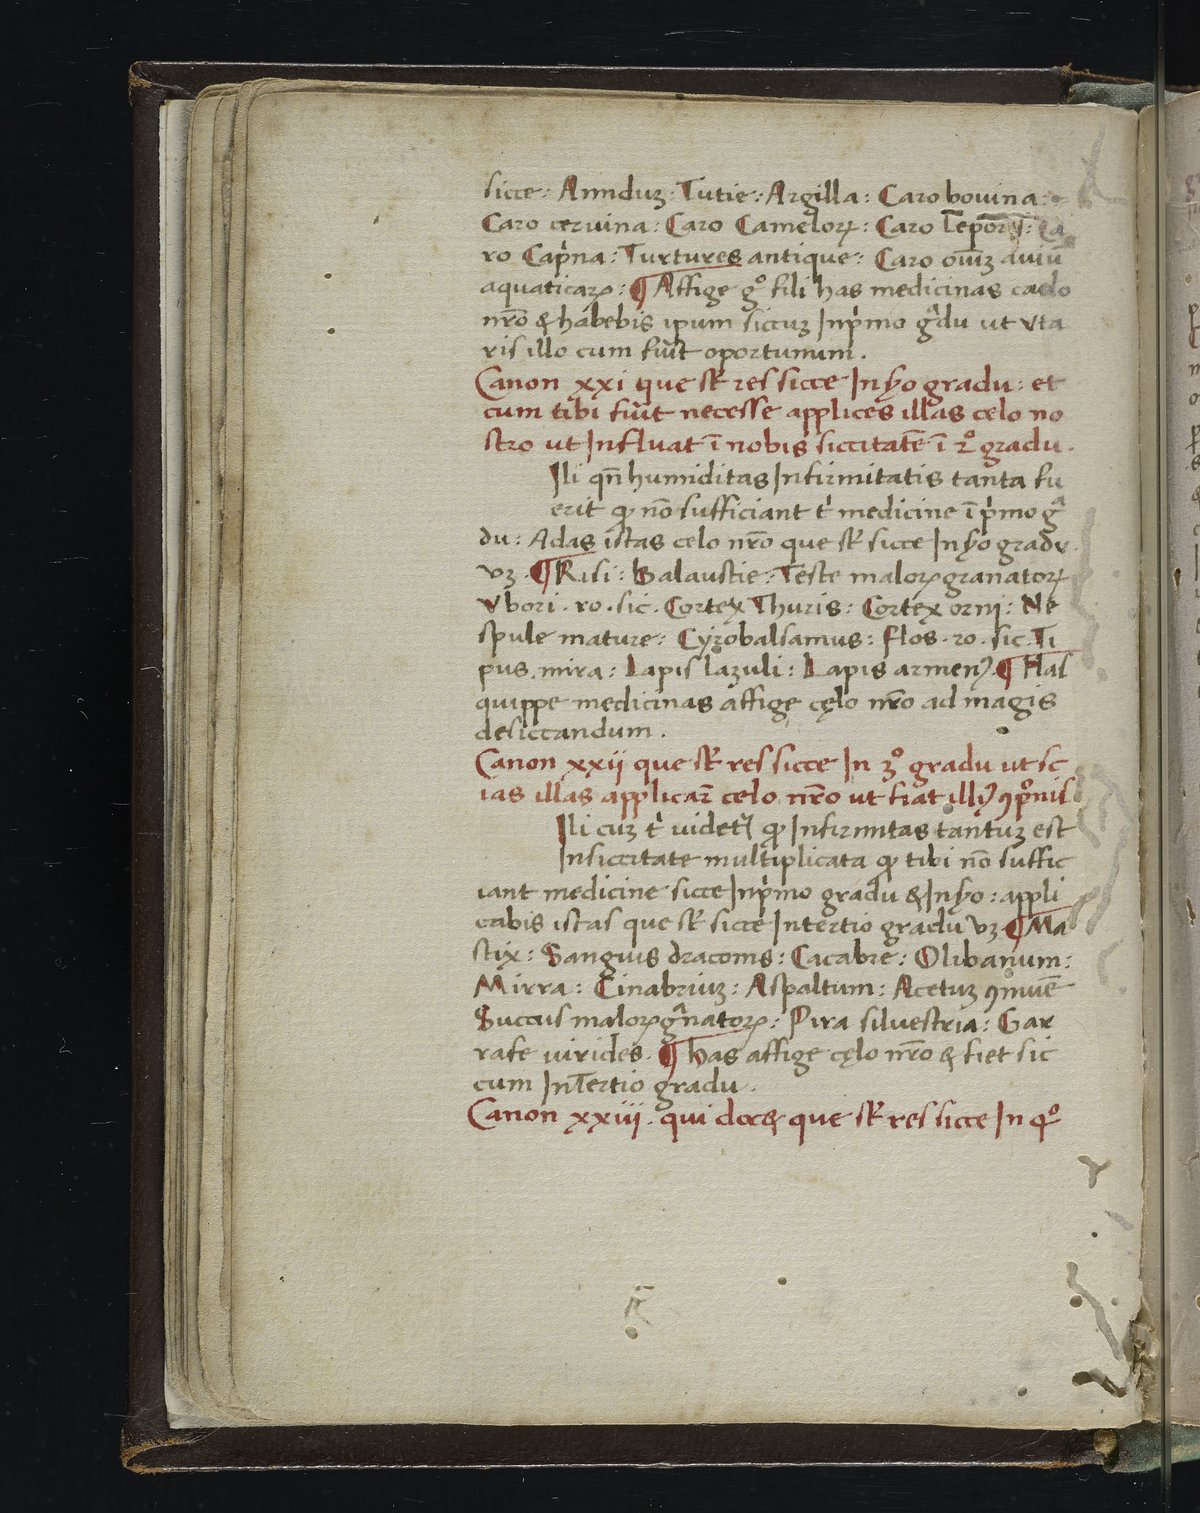 sicce: Amiduꝫ: Tutie: Argilla: Caro bouina:
Caro ceruina: Caro Cameloꝝ: Caro Lepoꝝ: Ca
ro Cap̍na: Turtures antique: Caro oīuꝫ auiū
aquaticaꝝ: ¶ Affige gº fili has medicinas caelo
nr̄o & habebis ipum siccuꝫ Inp̍mo g̍du ut vta
ris illo cum fuīt oportunum.
Canon xxi que st̄ res sicce In s̄o gradu: et
cum tibi fuīt necesse applices illas celo no
stro ut Influat ī nobis siccitatē ī 2º gradu.
Ili qn̄ humiditas Infirmitatis tanta fu
erit qꝫ nō sufficiant t̍ medicine ī p̍mo g̍
du: Adas istas celo nr̄o que st̄ sicce In s̄o gradu
vꝫ. ¶ Risi: Balaustie: Teste maloꝝ granatoꝝ
Vbori. ro. sic. Cortex Thuris: Cortex orni: Ne
spule mature: Cyrobalsamus: flos. ro. sic. Ti
pus. mira: Lapis lazuli: Lapis armenꝰ. ¶ Has
quippe medicinas affige cęlo nr̄o ad magis
desiccandum.
Canon xxii que st̄ res sicce In 3º gradu ut sc
ias illas applicar̄ celo nr̄o ut fiat illiꝰ ꝯp̄onis
Ili cuꝫ t̍ videtᷣ qꝫ Infirmitas tantuꝫ est
In siccitate multiplicata qꝫ tibi nō suffic
iant medicine sicce Inp̍mo gradu & In s̄o: appli
cabis istas que st̄ sicce Intertio gradu vꝫ ¶ Ma
stix: Sanguis draconis: Cacabre: Olibanum:
Mirra: Cinabriuꝫ: Aspaltum: Acetuꝫ ꝯmuē
Succus maloꝝ g̍natoꝝ: Pira siluestria: Gar
rafe uirides. ¶ has affige cęlo nr̄o & fiet sic
cum InTertio gradu.
Canon xxiii. qui doc& que st̄ res sicce In qº